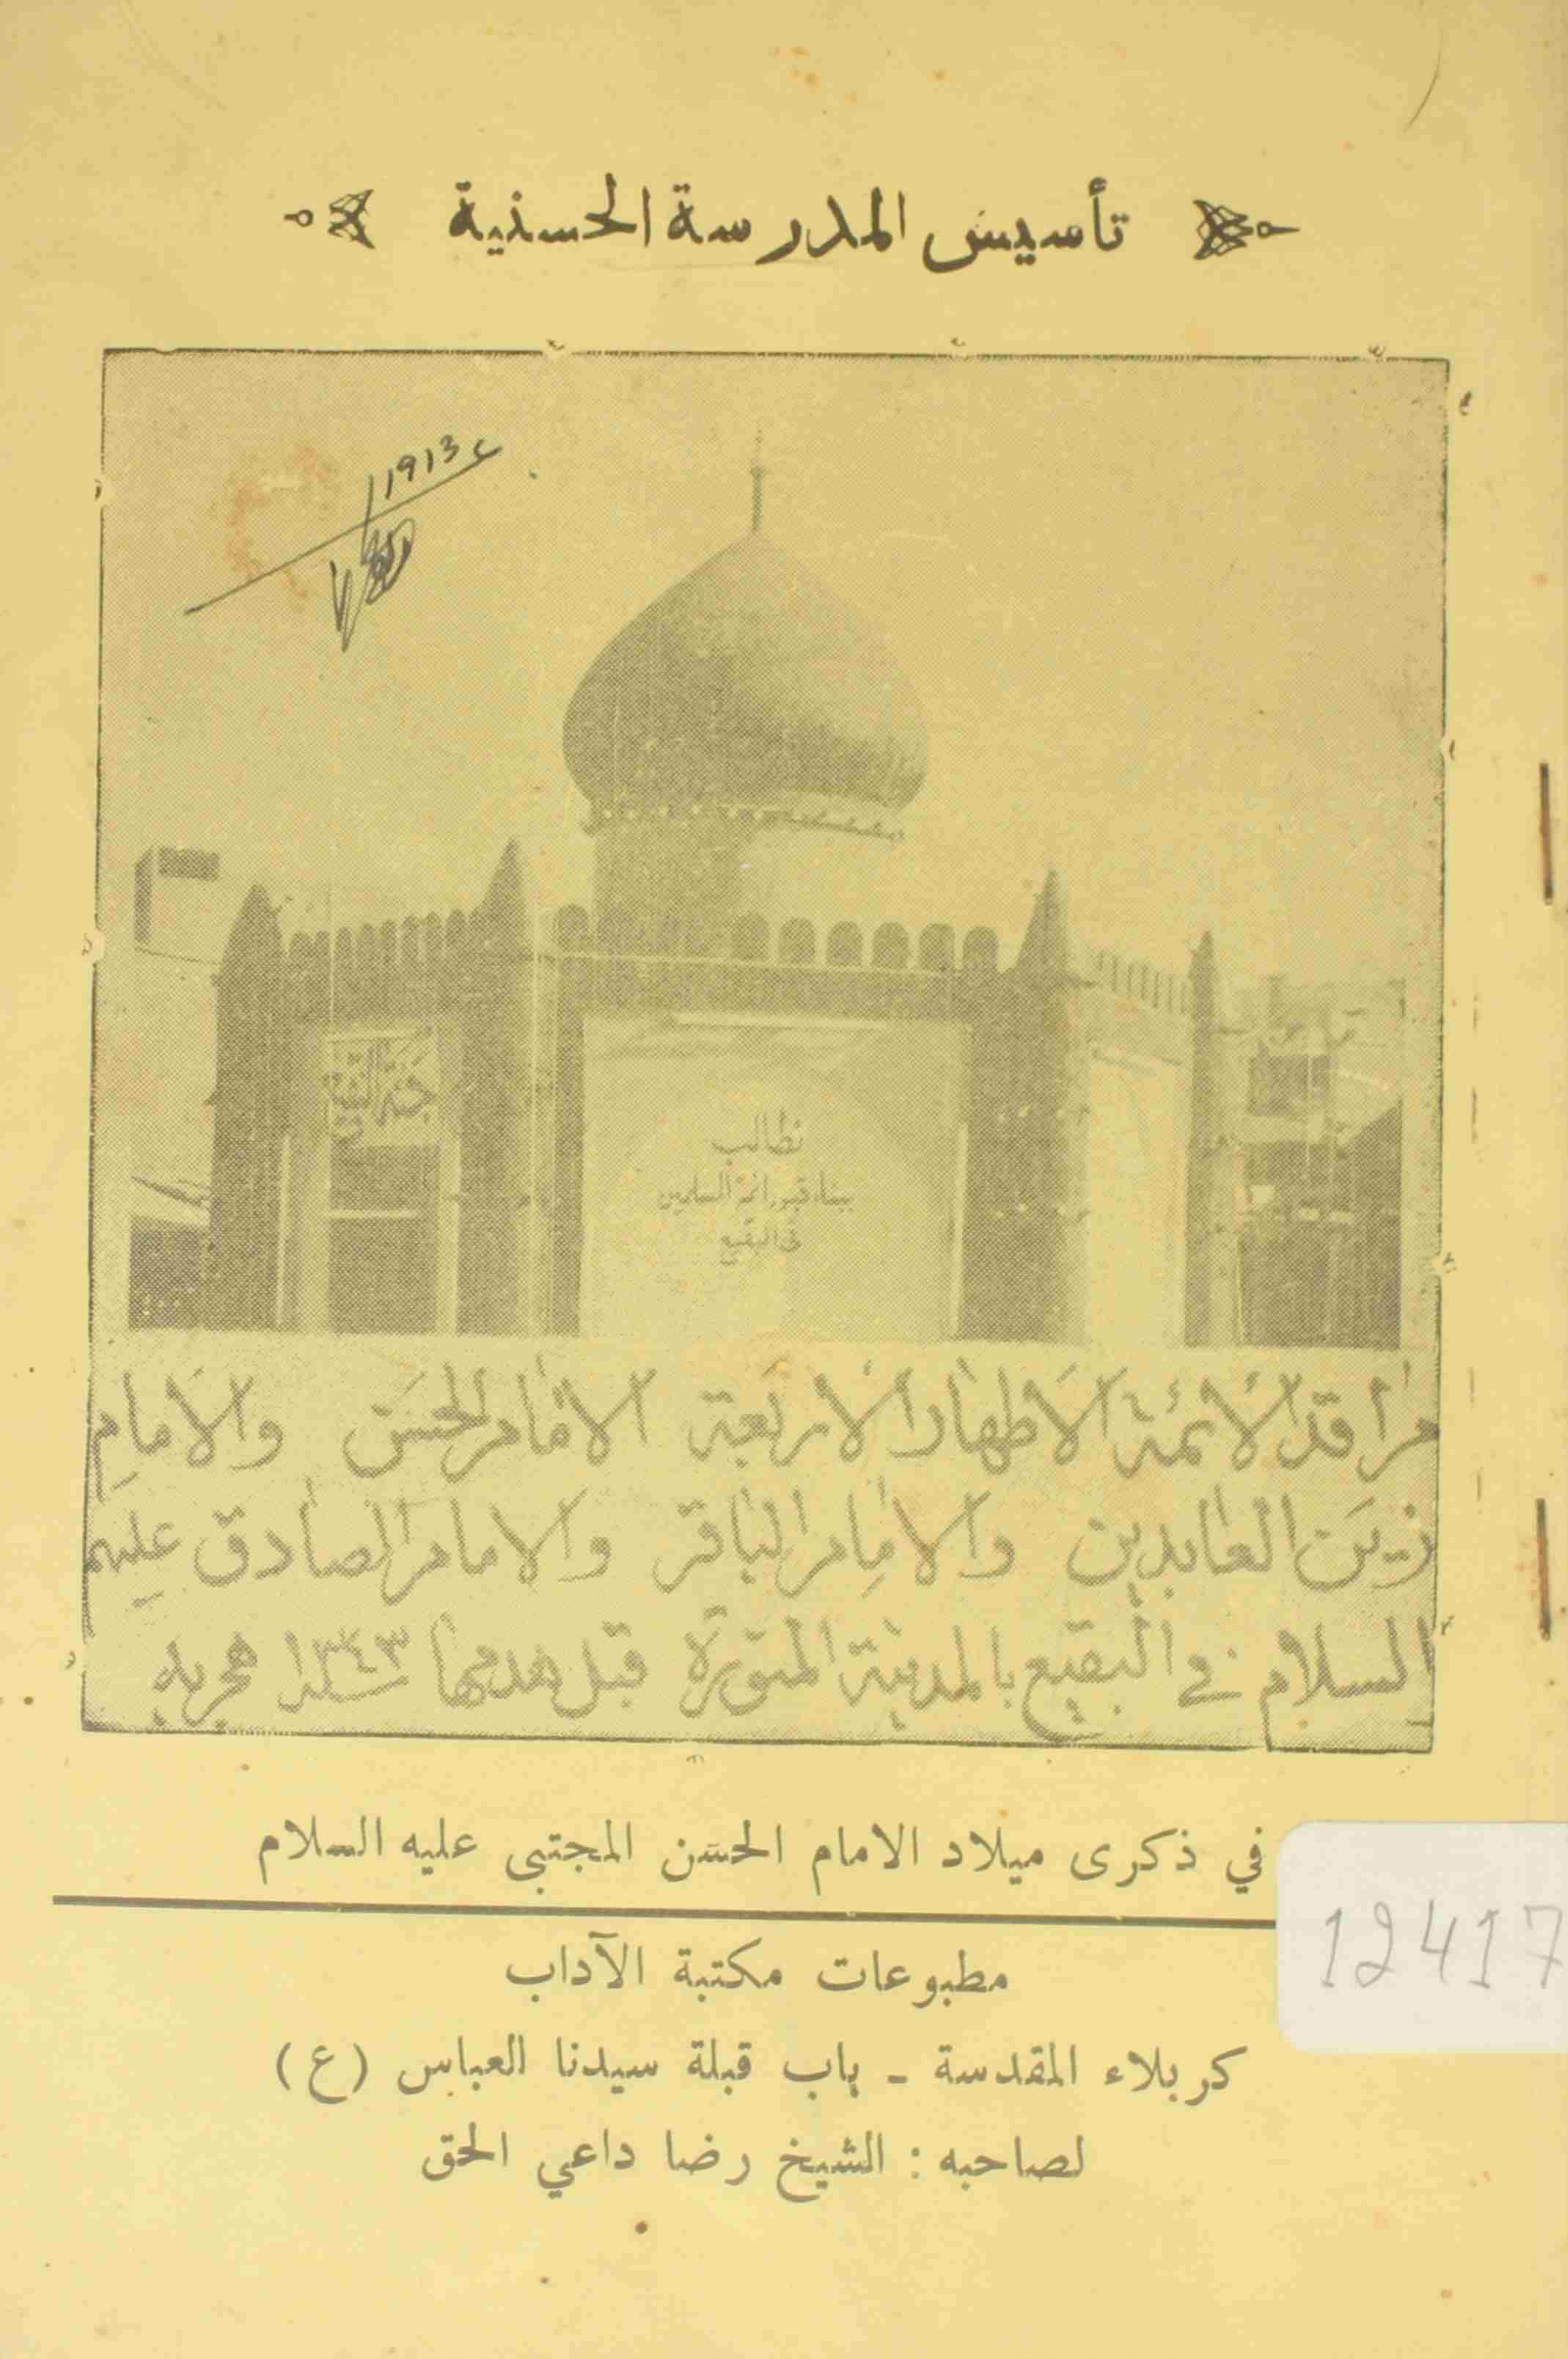 تأسيس المدرسة الحسنية
1913ع
جنة البقيع
نطالب
ببناء قبور ائمة المسلمين
في البقيع
مراقد الأئمة الأطهار الأربعة الامام الحسن والامام
زين العابدين والامام الباقر والامام الصادق عليهم
السلام في البقيع بالمدينة المنورة قبل هدمها سنة ١٣٤٣ هجرية
في ذكرى ميلاد الامام الحسن المجتبى عليه السلام
12417
مطبوعات مكتبة الآداب
كربلاء المقدسة - باب قبلة سيدنا العباس (ع)
لصاحبه : الشيخ رضا داعي الحق